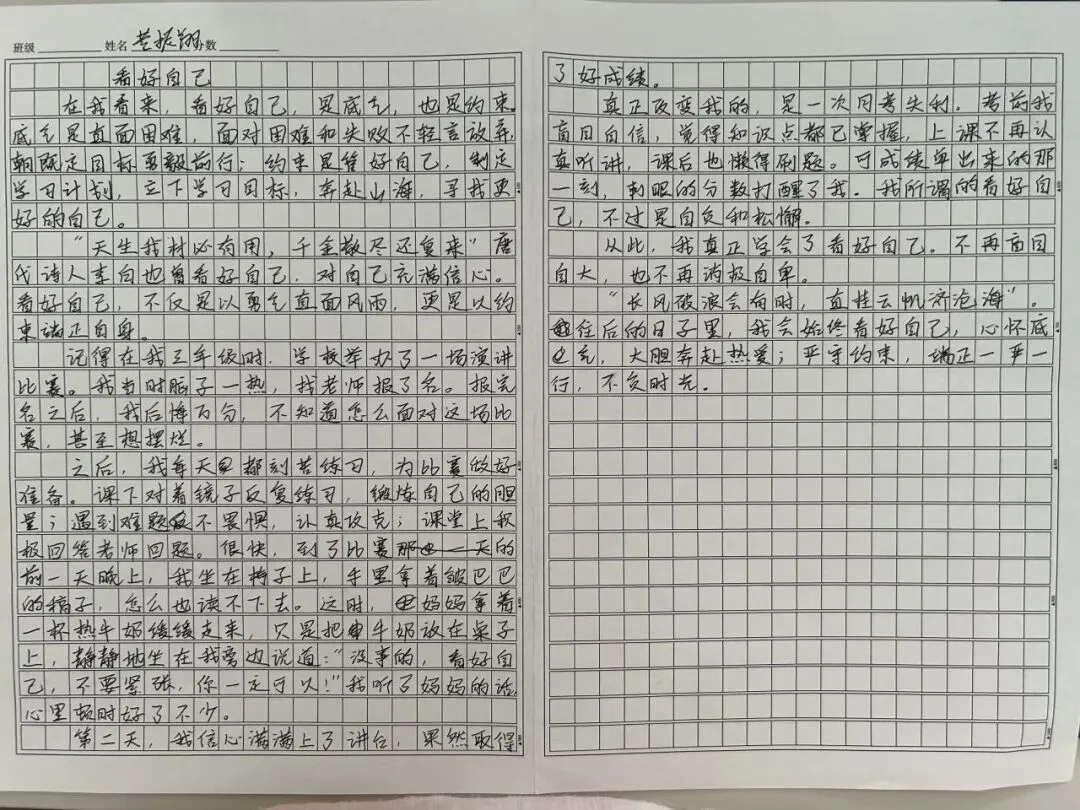 班级 姓名 黄振翔 分数
看好自己
在我看来，看好自己，是底气，也是约束。
底气是直面困难，面对困难和失败不轻言放弃，
朝既定目标勇毅前行；约束是管好自己，制定
学习计划，立下学习目标，奔赴山海，寻找更
好的自己。
“天生我材必有用，千金散尽还复来”唐
代诗人李白也曾看好自己，对自己充满信心。
看好自己，不仅是以勇气直面风雨，更是以约
束端正自身。
记得在我三年级时，学校举办了一场演讲
比赛。我当时脑子一热，找老师报了名。报完
名之后，我后悔万分，不知道怎么面对这场比
赛，甚至想摆烂。
之后，我每天都刻苦练习，为比赛做好
准备。课下对着镜子反复练习，锻炼自己的胆
量；遇到难题不畏惧，认真攻克；课堂上积
极回答老师回题。很快，到了比赛的
前一天晚上，我坐在椅子上，手里拿着皱巴巴
的稿子，怎么也读不下去。这时，妈妈拿着
一杯热牛奶缓缓走来，只是把牛奶放在桌子
上，静静地坐在我旁边说道：“没事的，看好自
己，不要紧张，你一定可以！”我听了妈妈的话，
心里顿时好了不少。
第二天，我信心满满上了讲台，果然取得
了好成绩。
真正改变我的，是一次月考失利。考前我
盲目自信，觉得知识点都已掌握，上课不再认
真听讲，课后也懒得刷题。可成绩单出来的那
一刻，刺眼的分数打醒了我。我所谓的看好自
己，不过是自负和松懈。
从此，我真正学会了看好自己。不再盲目
自大，也不再消极自卑。
“长风破浪会有时，直挂云帆济沧海”。
往后的日子里，我会始终看好自己，心怀底
气，大胆奔赴热爱；严守约束，端正一言一
行，不负时光。